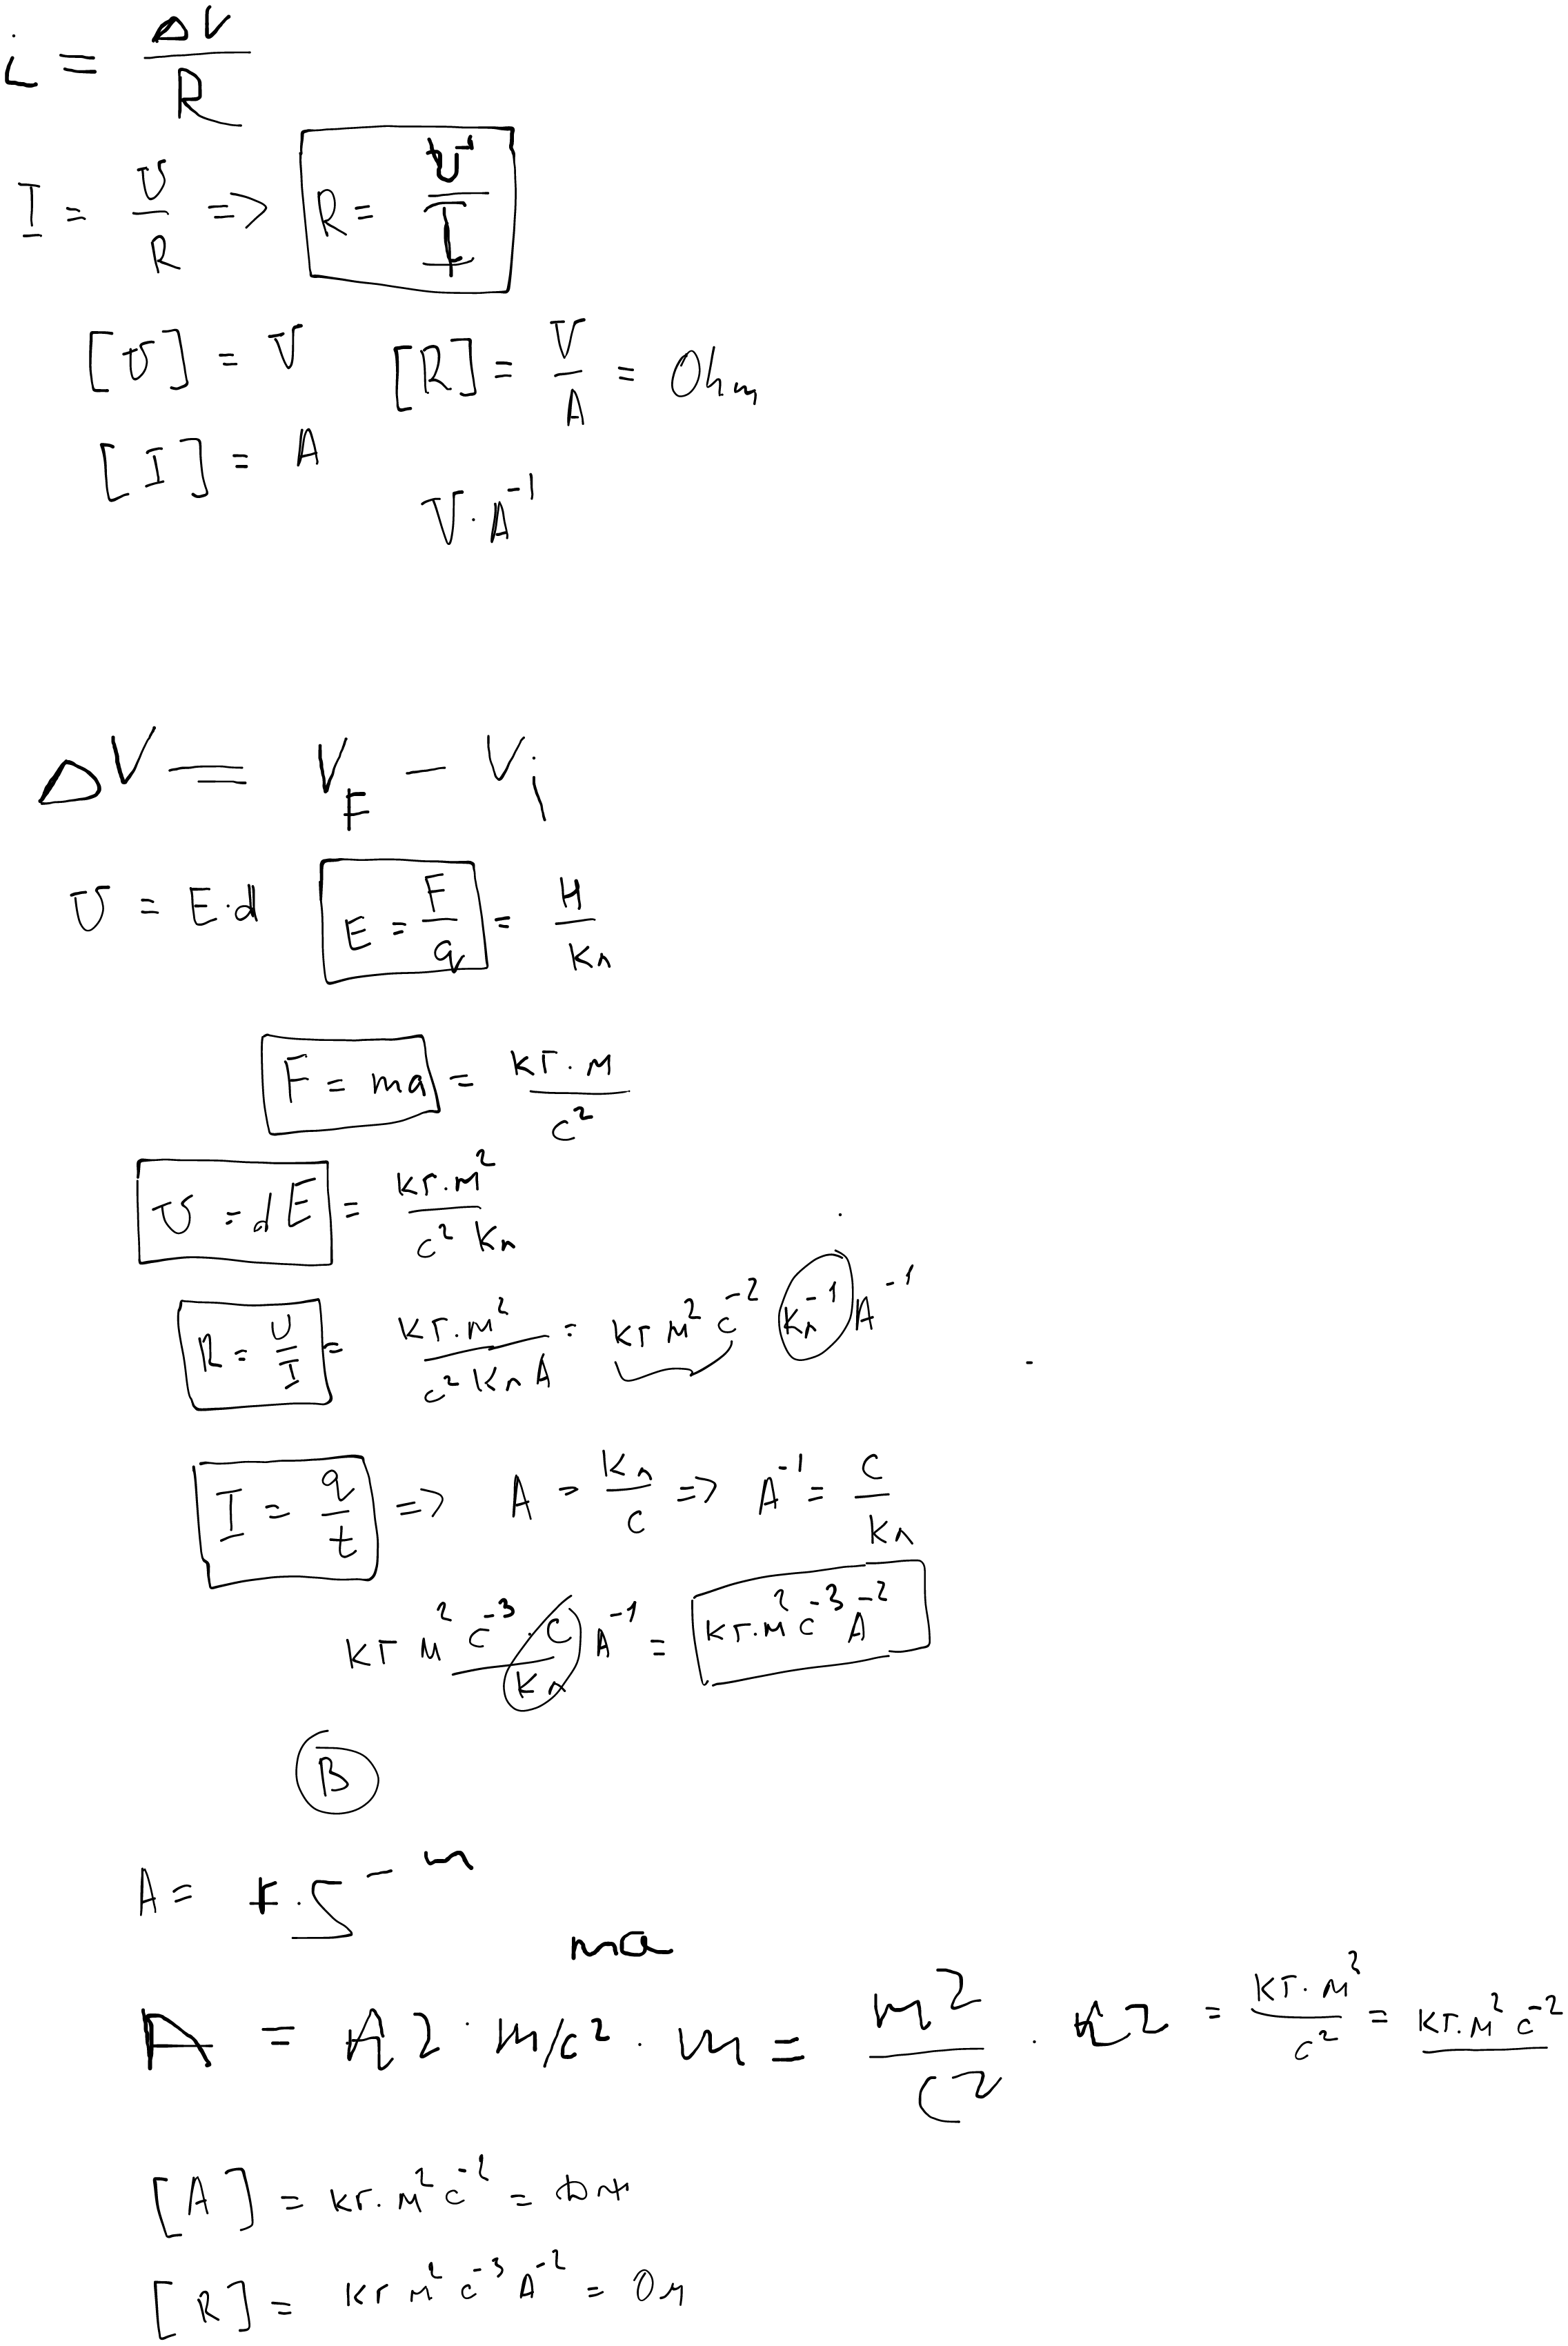 i = ΔV/R
I = U/R => R = U/I
[U] = V [R] = V/A = Ohm
[I] = A
V·A⁻¹
ΔV = V_F - V_i
U = E·d E = F/q = Н/Кл
F = ma = кг·м/с²
U = dE = кг·м²/с² Кл
R = U/I = кг·м²/с² Кл А = кг м² с⁻² Кл⁻¹ А⁻¹
I = q/t => A = Кл/с => A⁻¹ = с/Кл
кг м² с⁻³·с/Кл А⁻¹ = кг·м² с⁻³ А⁻²
B
A = F·S - m
ma
A = кг·m/c²·m = m²/c² · кг = кг·м²/с² = кг·м² с⁻²
[A] = кг·м² с⁻² = Дж
[R] = кг м² с⁻³ А⁻² = Ом